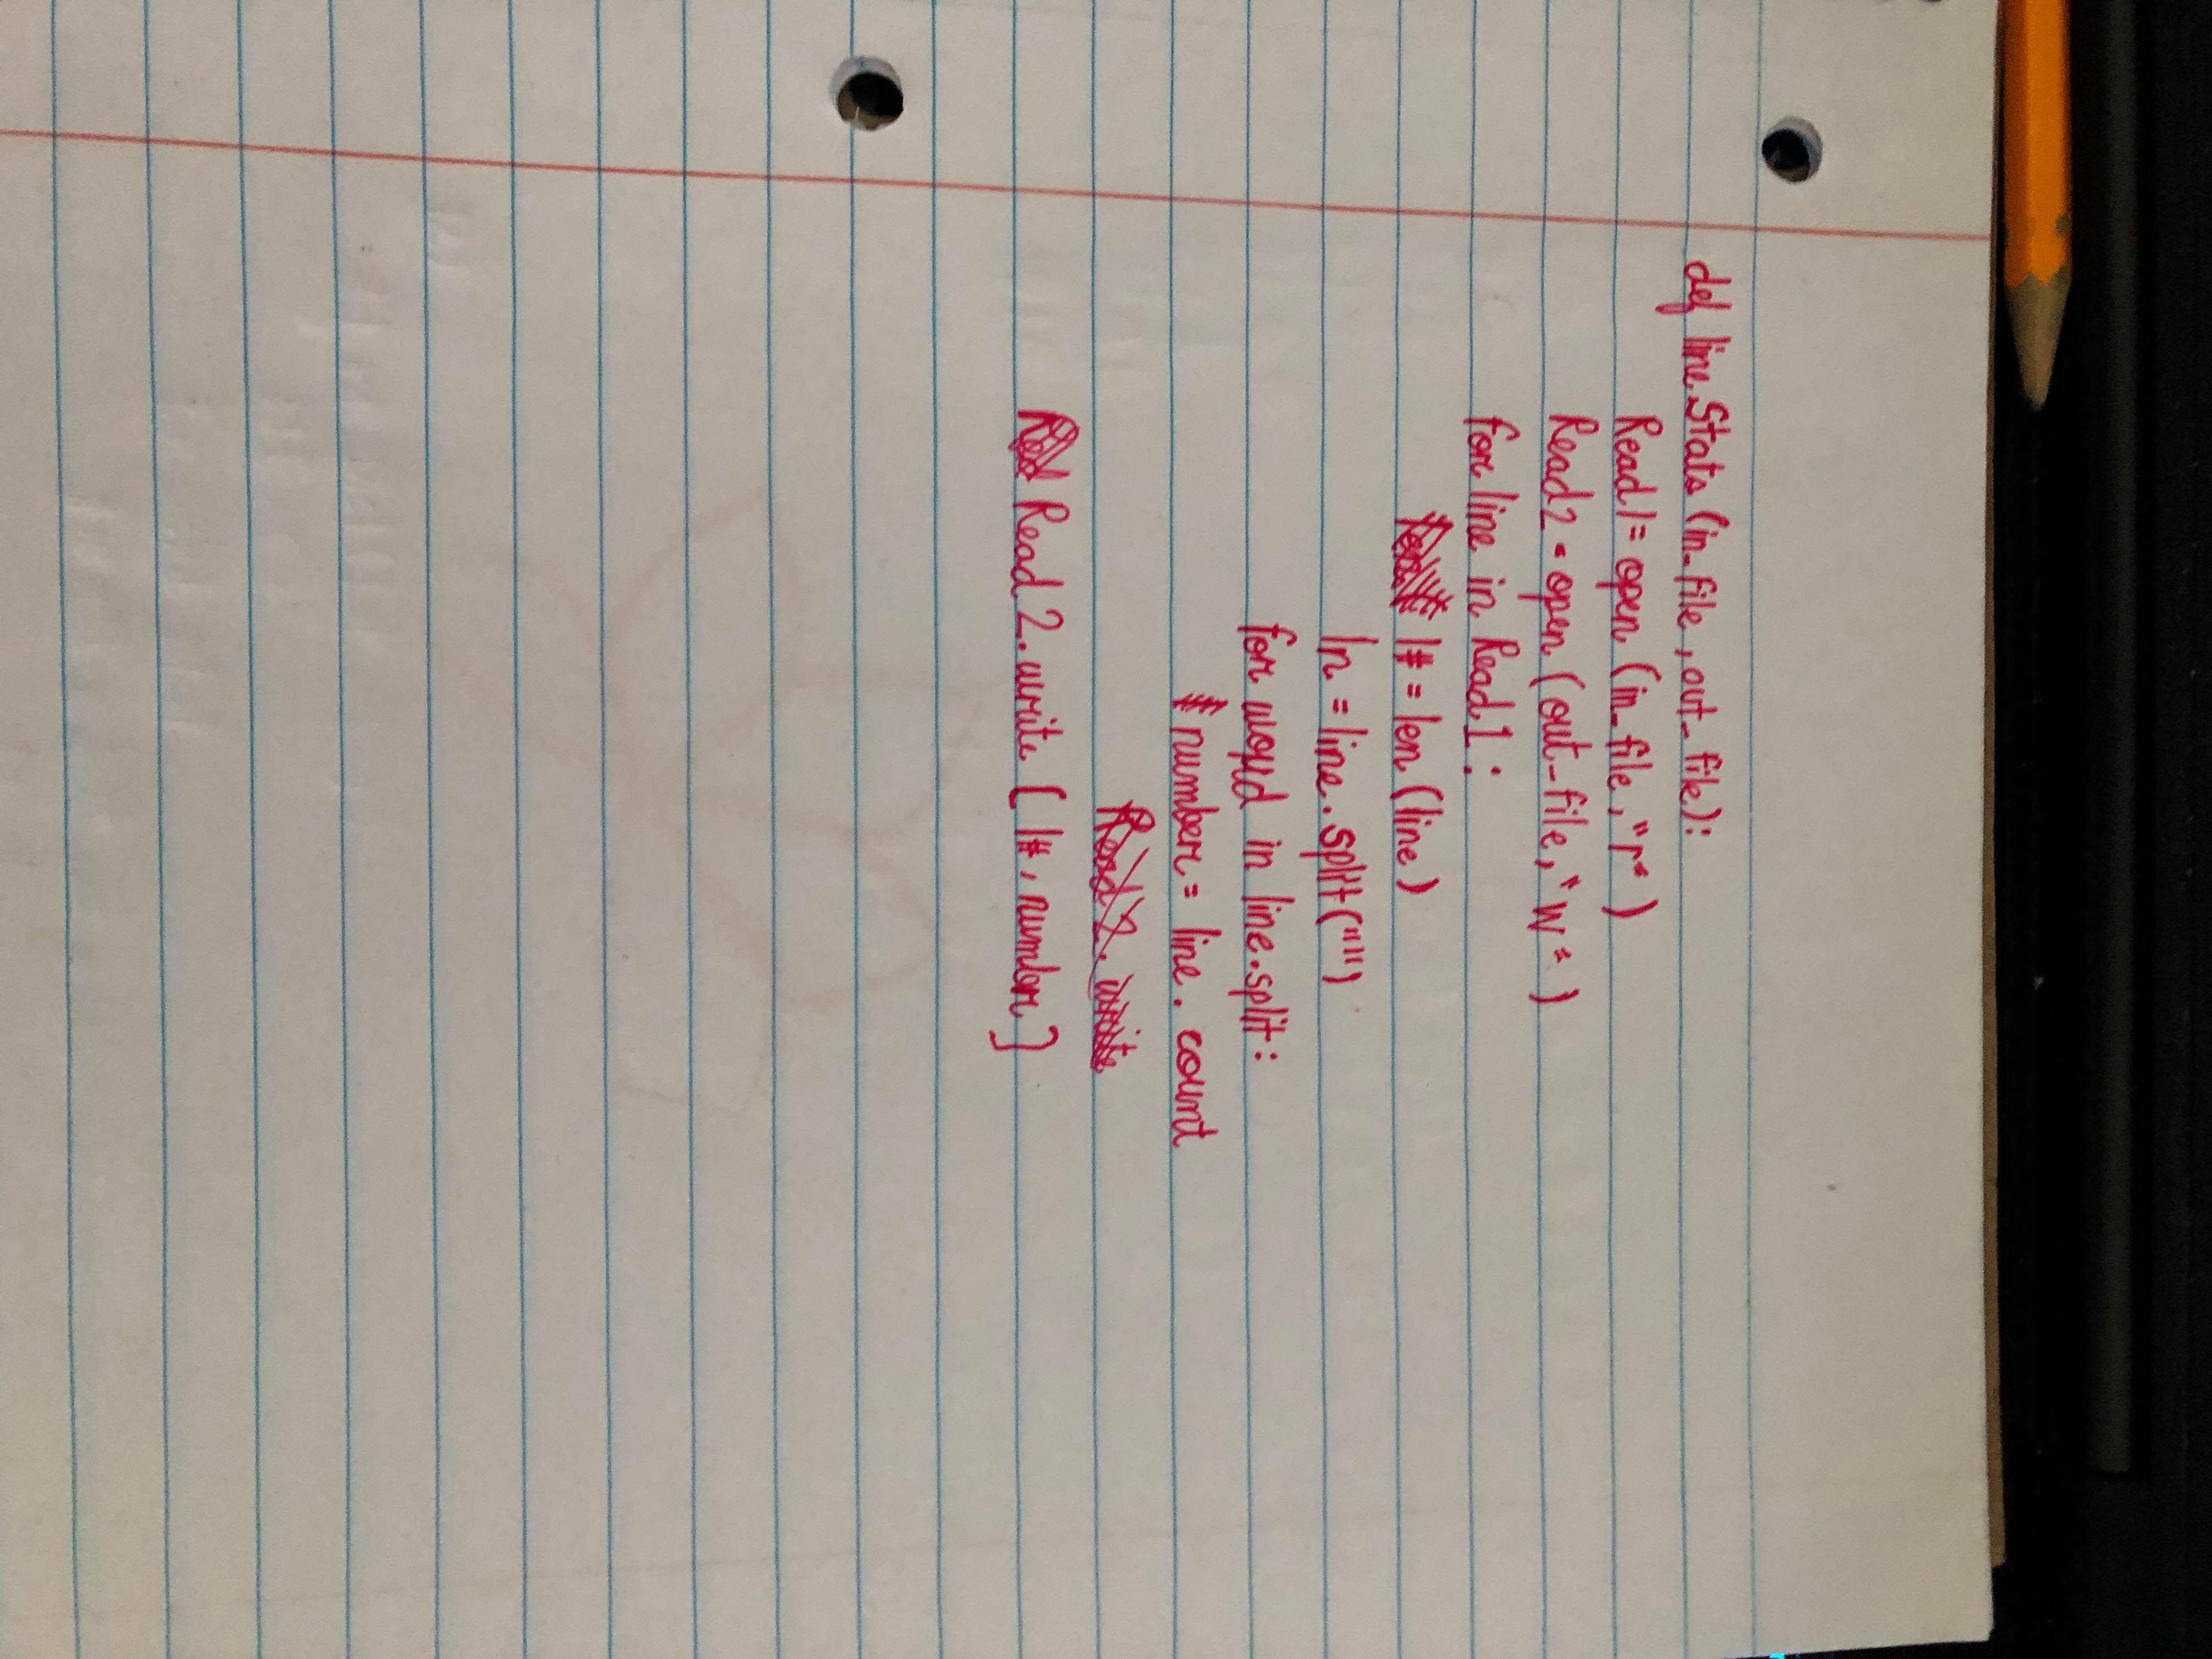 def line.Stats (in_file, out_file):
Read1 = open (in_file, "r")
Read2 = open (out_file, "W")
for line in Read1:
l# = len (line)
ln = line.split("")
for word in line.split:
number = line.count
Read2. write
Read 2. write (l#, number)